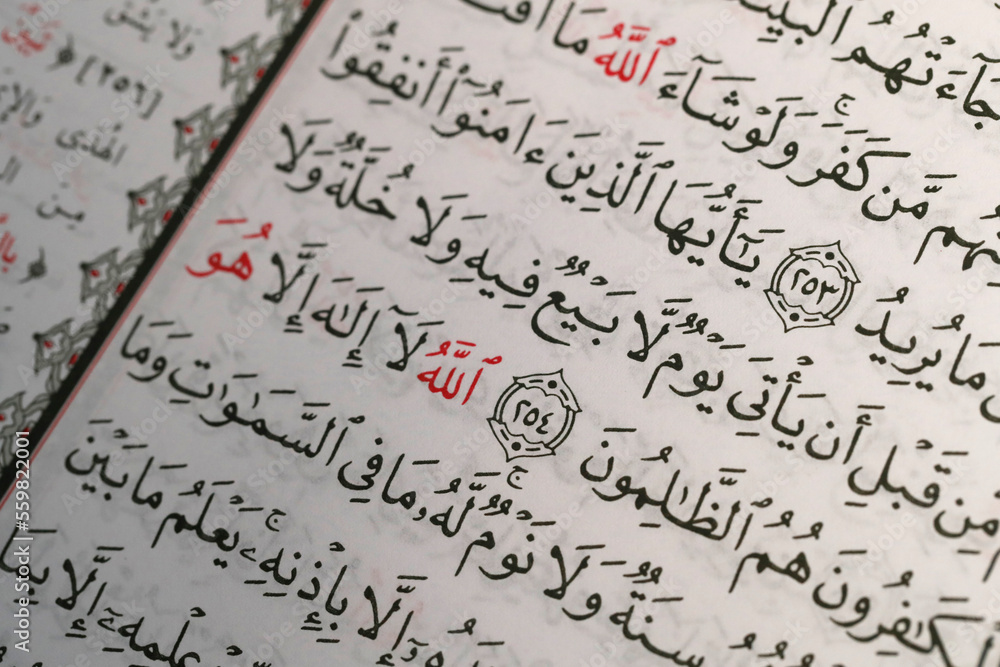 جَآءَتْهُمُ ٱلْبَيِّنَـ
ـهُم مَّن كَفَرَ ۚ وَلَوْ شَآءَ ٱللَّهُ مَا ٱقْتَـ
مَا يُرِيدُ ٢٥٣ يَـٰٓأَيُّهَا ٱلَّذِينَ ءَامَنُوٓا۟ أَنفِقُوا۟
مِن قَبْلِ أَن يَأْتِىَ يَوْمٌ لَّا بَيْعٌ فِيهِ وَلَا خُلَّةٌ وَلَا
ٱلْكَـٰفِرُونَ هُمُ ٱلظَّـٰلِمُونَ ٢٥٤ ٱللَّهُ لَآ إِلَـٰهَ إِلَّا هُوَ
سِنَةٌ وَلَا نَوْمٌ ۚ لَّهُۥ مَا فِى ٱلسَّمَـٰوَٰتِ وَمَا
إِلَّا بِإِذْنِهِۦ ۚ يَعْلَمُ مَا بَيْنَ
عِلْمِهِۦٓ إِلَّا بِمَا
[٢٥٦]
الهُدَى
مِن
Adobe Stock | #559822001